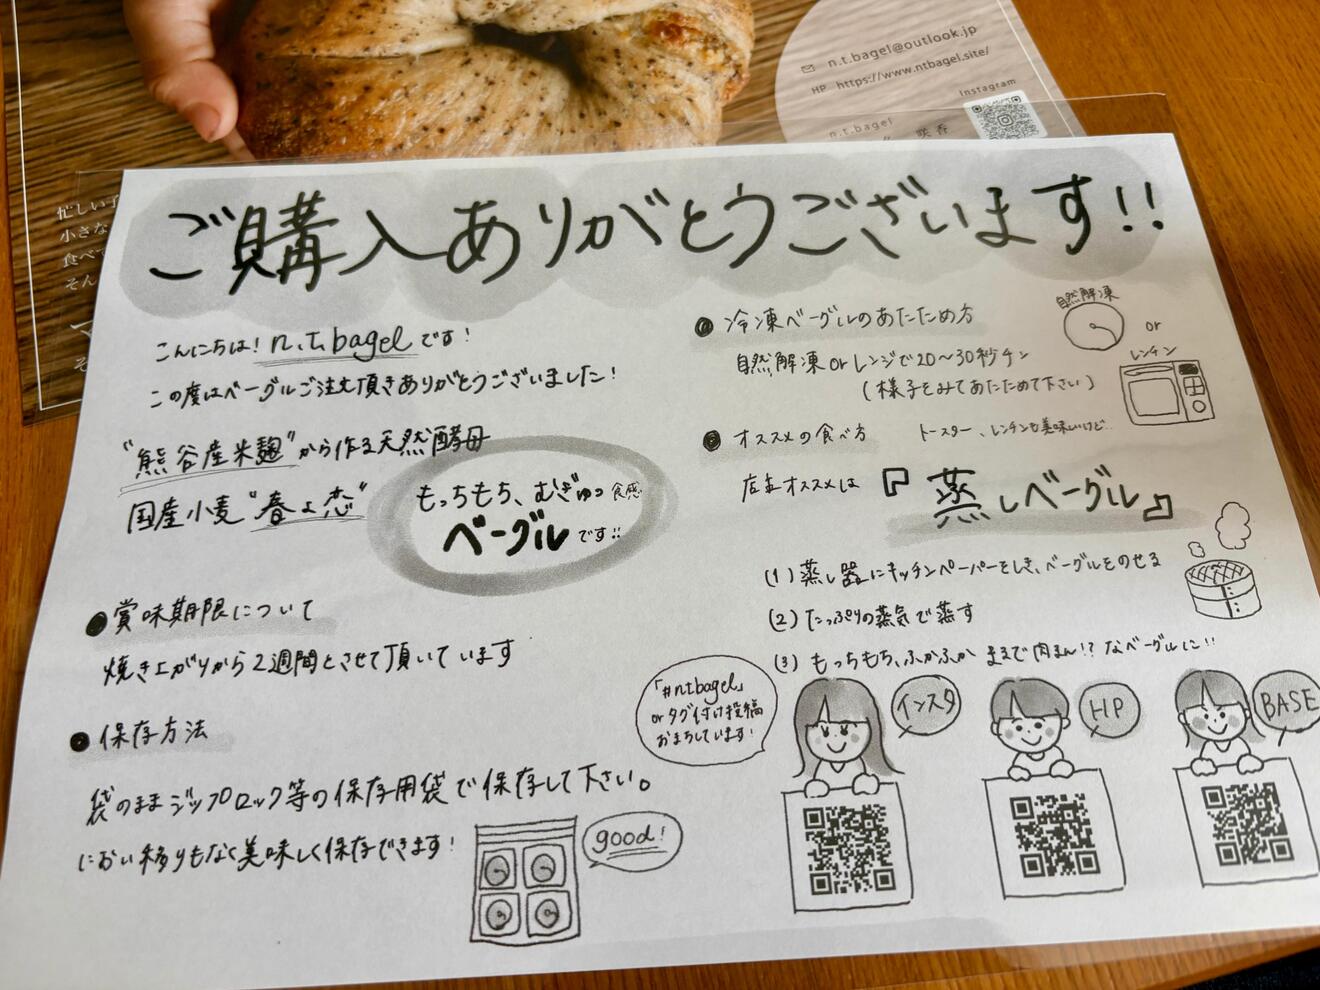 n.t.bagel@outlook.jp
HP https://www.ntbagel.site/
Instagram
n.t.bagel
咲香
忙しい子
小さな
食べて
そん
ご購入ありがとうございます!!
こんにちは! n.t.bagel です!
この度はベーグルご注文頂きありがとうございました!
"熊谷産米麹"から作る天然酵母
国産小麦"春よ恋"
もっちもち、むぎゅっ食感
ベーグルです!!
●賞味期限について
焼き上がりから2週間とさせて頂いています
●保存方法
袋のままジップロック等の保存用袋で保存して下さい。
におい移りもなく美味しく保存できます!
good!
●冷凍ベーグルのあたため方
自然解凍 or レンジで20〜30秒チン
(様子をみてあたためて下さい)
自然解凍
or
レンチン
●オススメの食べ方
トースター、レンチンも美味しいけど...
店主オススメは『蒸しベーグル』
(1) 蒸し器にキッチンペーパーをしき、ベーグルをのせる
(2) たっぷりの蒸気で蒸す
(3) もっちもち、ふかふか まるで肉まん!?なベーグルに!!
「#ntbagel」
or タグ付け投稿
おまちしています!
インスタ
HP
BASE